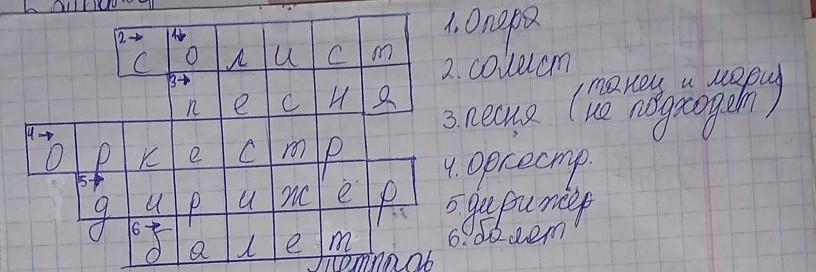 2→ 1↓
с о л и с т
3→
п е с н я
4→
о р к е с т р
5→
д и р и ж ё р
6→
б а л е т
1. Опера
2. солист
(танец и марш
3. песня не подходет)
4. оркестр.
5. дирижёр
6. балет